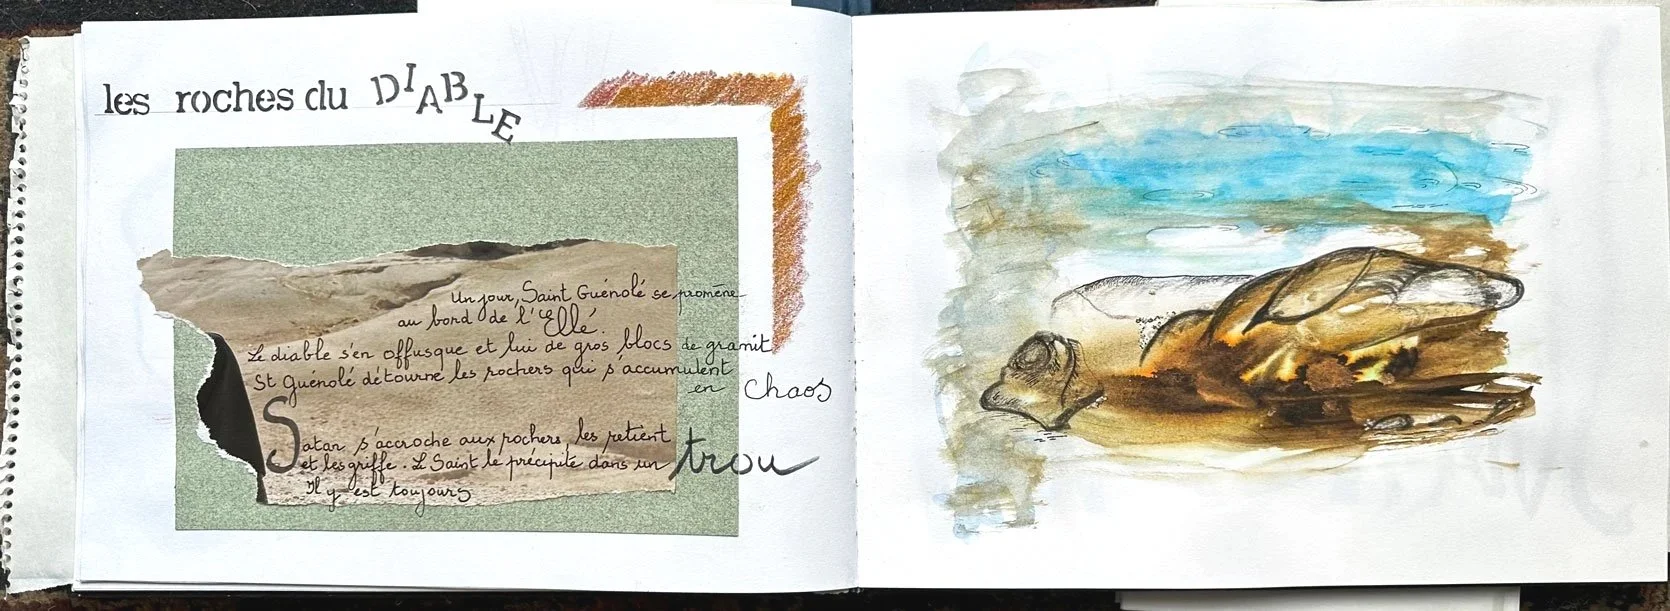 les roches du DIABLE
Un jour, Saint Guénolé se promène
au bord de l'Ellé.
Le diable s'en offusque et lui de gros blocs de granit
St Guénolé détourne les rochers qui s'accumulent
en chaos
Satan s'accroche aux rochers, les retient
et les griffe. Le Saint le précipite dans un trou
Il y est toujours